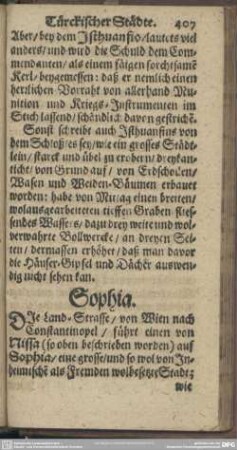 Türckischer Städte. 407
Aber/ bey dem Isthuanfio/ lautets viel
anders/ und wird die Schuld dem Com-
mendanten/ als einem fäigen forchtsamē
Kerl/ beygemessen: daß er nemlich einen
herzlichen Vorraht von allerhand Mu-
nition und Kriegs-Instrumenten im
Stich lassend/ schändlich davon gestrichē.
Sonst schreibt auch Isthuanfius von
dem Schloß/ es sey/ wie ein grosses Städt-
lein/ starck und übel zu erobern/ dreykan-
ticht/ von Grund auf/ von Erdschollen/
Wasen und Weiden-Bäumen erbauet
worden: habe von Mittag einen breiten/
wolausgearbeiteten tieffen Graben flies-
sendes Wassers/ dazu drey weite und wol-
verwahrte Bollwercke/ an dreyen Sei-
ten/ dermassen erhöhet/ daß man davor
die Häuser-Gipfel und Dächer auswen-
dig nicht sehen kan.
Sophia.
Die Land-Strasse/ von Wien nach
Constantinopel/ führt einen von
Nissa (so oben beschrieben worden) auf
Sophia/ eine grosse/ und so wol von In-
heimischē als Fremden wolbesetzte Stadt;
wie